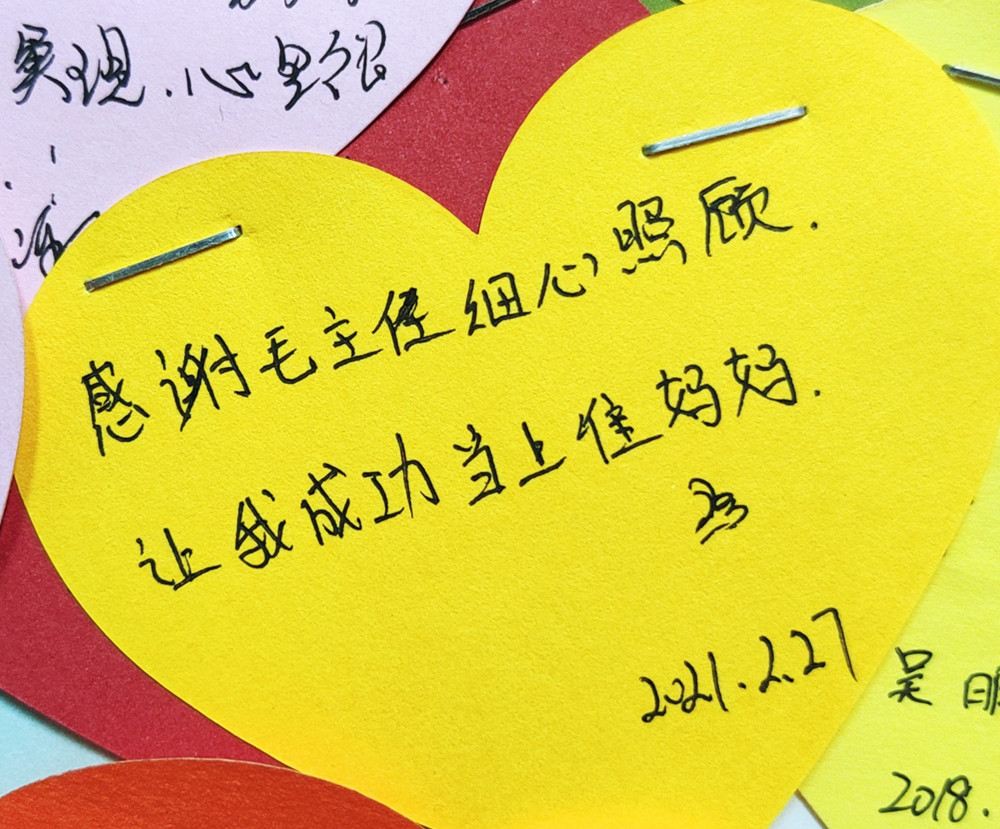 实现.心里很
感谢毛主任细心照顾.
让我成功当上准妈妈.
2021.2.27
吴明
2018.